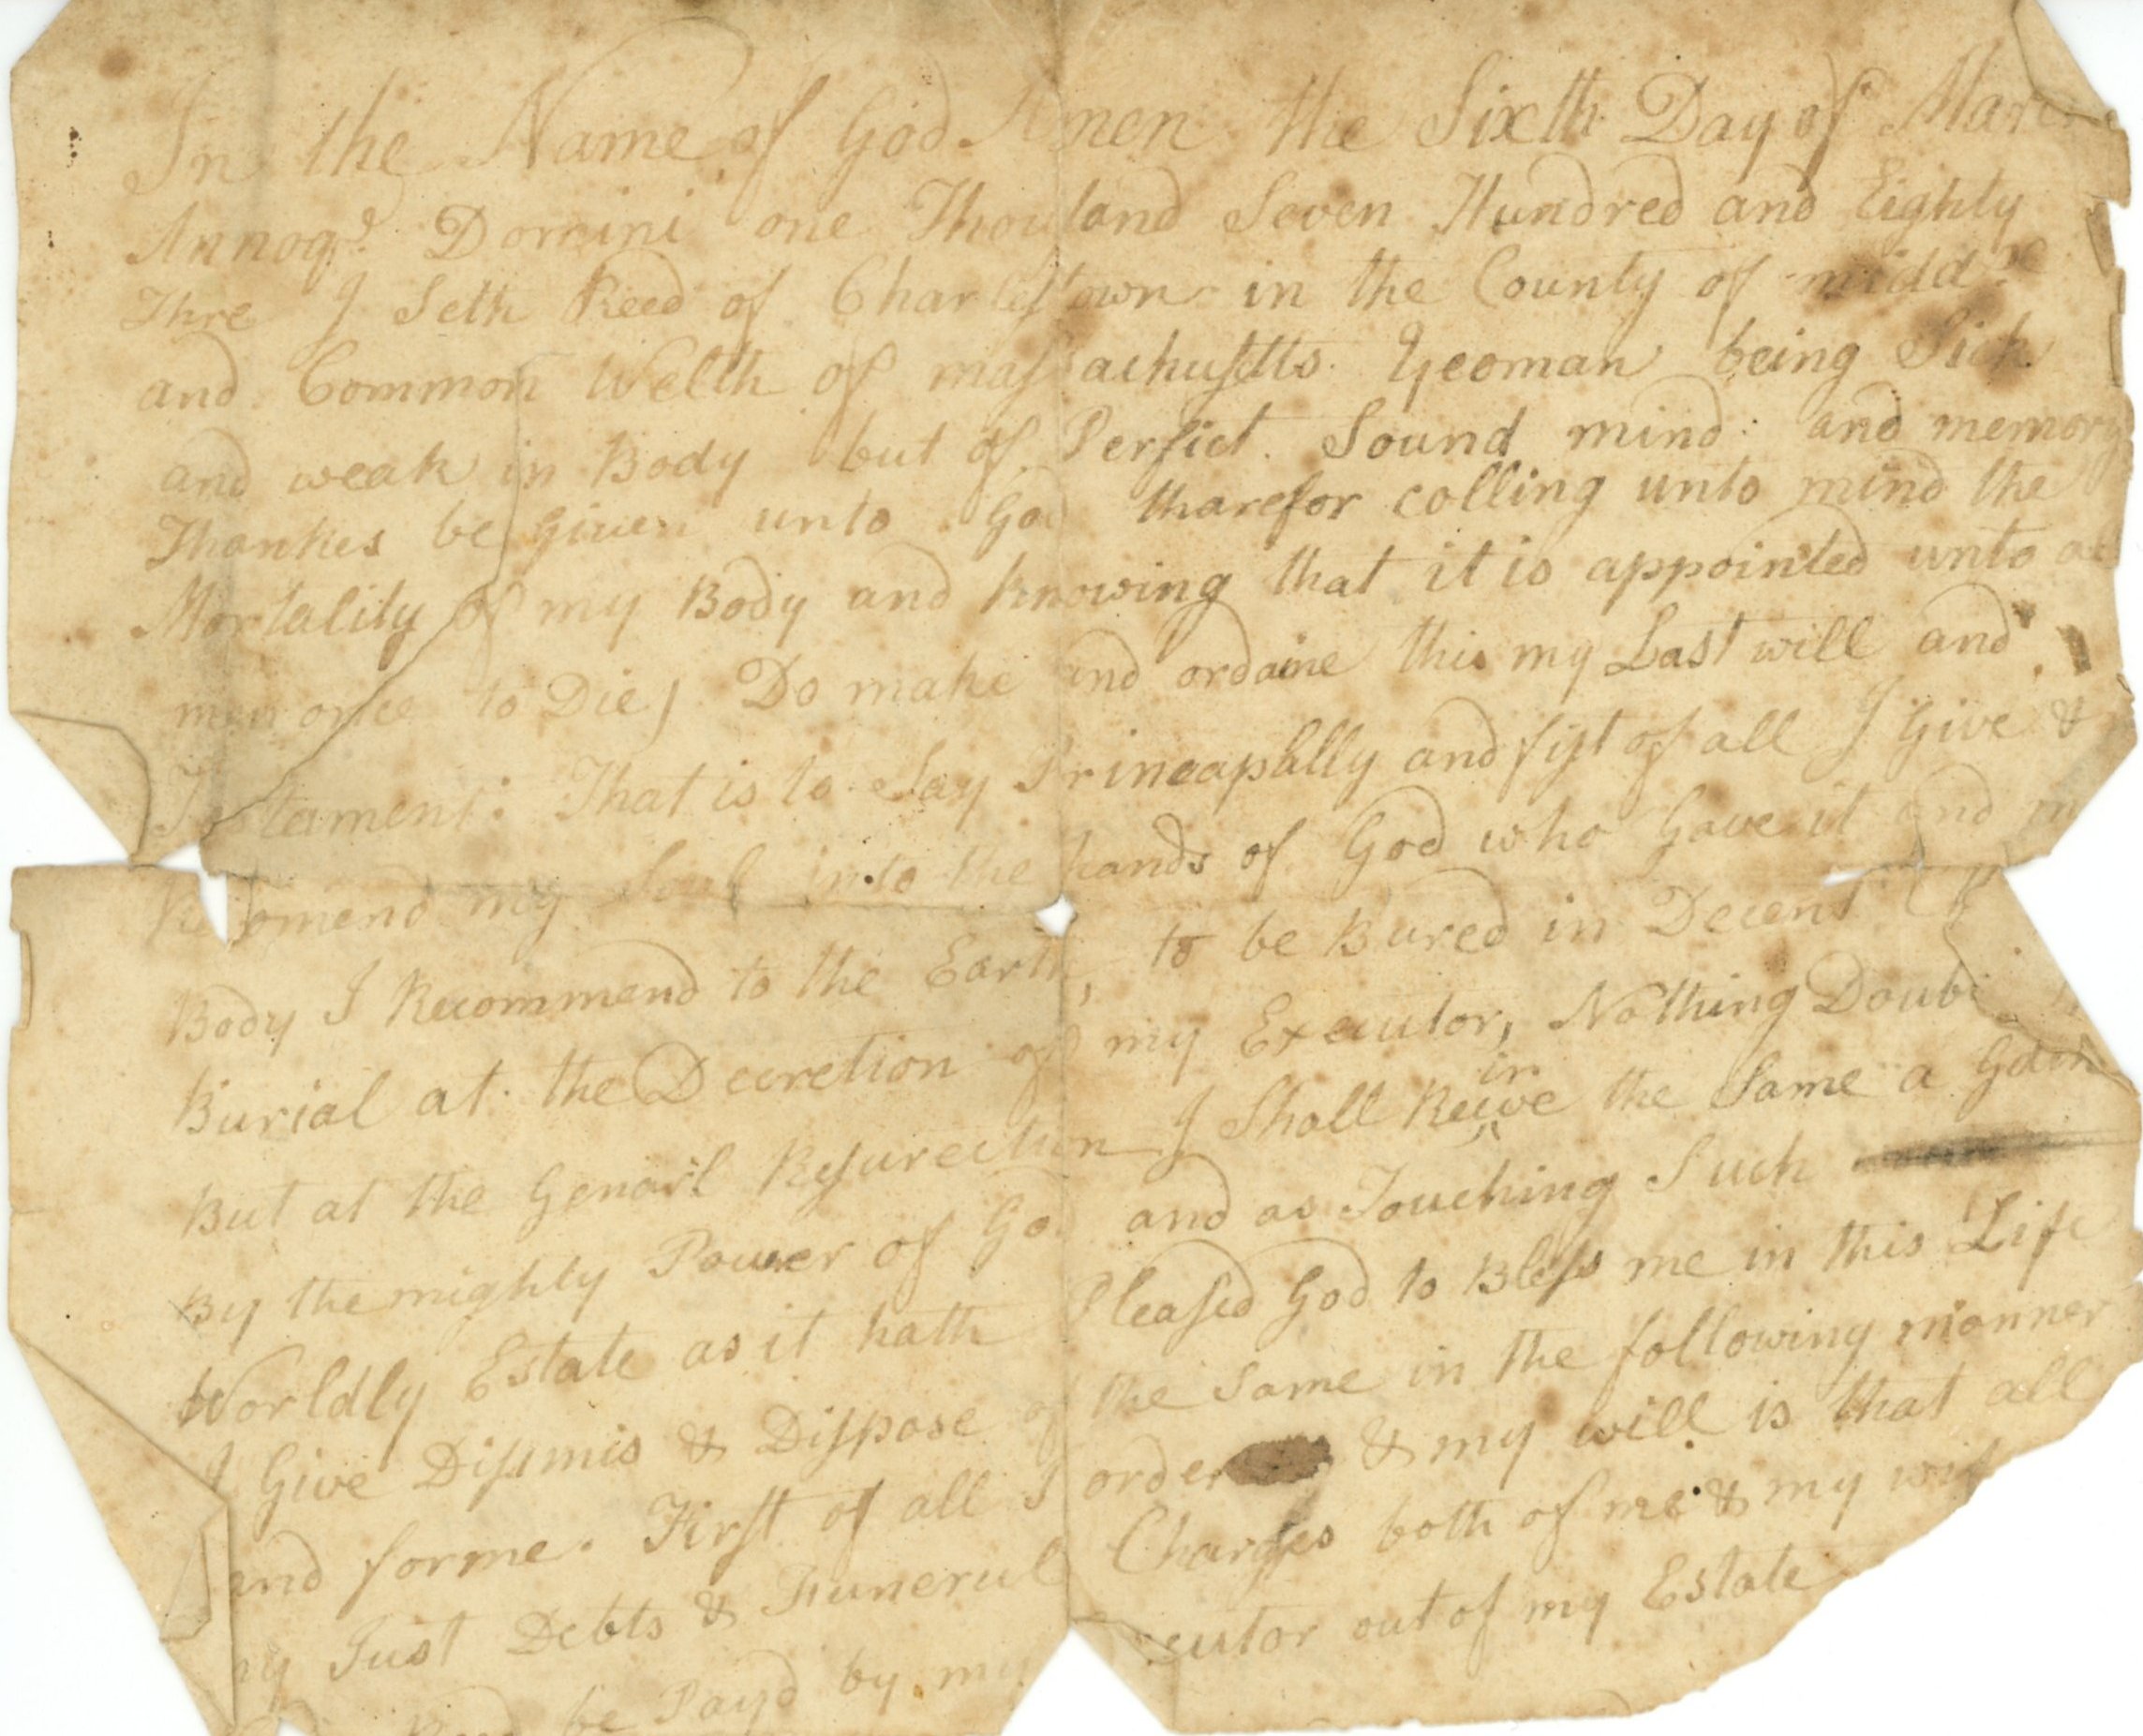 In the Name of God Amen the Sixth Day of Marc
Annoqe Domini one Thouſand Seven Hundred and Eighty
Thre I Seth Reed of Charleſtown in the County of middx
and Common Welth of maſsachuſetts Yeoman being Sick
and weak in Body but of Perfict Sound mind and memory
Thankes be given unto God tharefor colling unto mind the
Mortality of my Body and knowing that it is appointed unto all
men once to Die) Do make and ordaine this my Last will and
Testament: That is to Say Princapblly and fiſt of all I Give &
Recomend my Soul into the hands of God who Gave it and my
Body I Recommend to the Earth, to be Bured in Decent
Burial at the Decretion of my Executor, Nothing Doubt
But at the Genarl Reſurection I Shall Receive the Same a Gain
By the mighty Power of God and as Touching Such
Worldly Estate as it hath Pleaſed God to Bleſs me in this Life
I Give Diſsmis & Diſpose of the Same in the following manner
and forme. Firſt of all I order & my will is that all
my Just Debts & Funerul Charges both of me & my wif
be Payd by my Executor out of my Estate